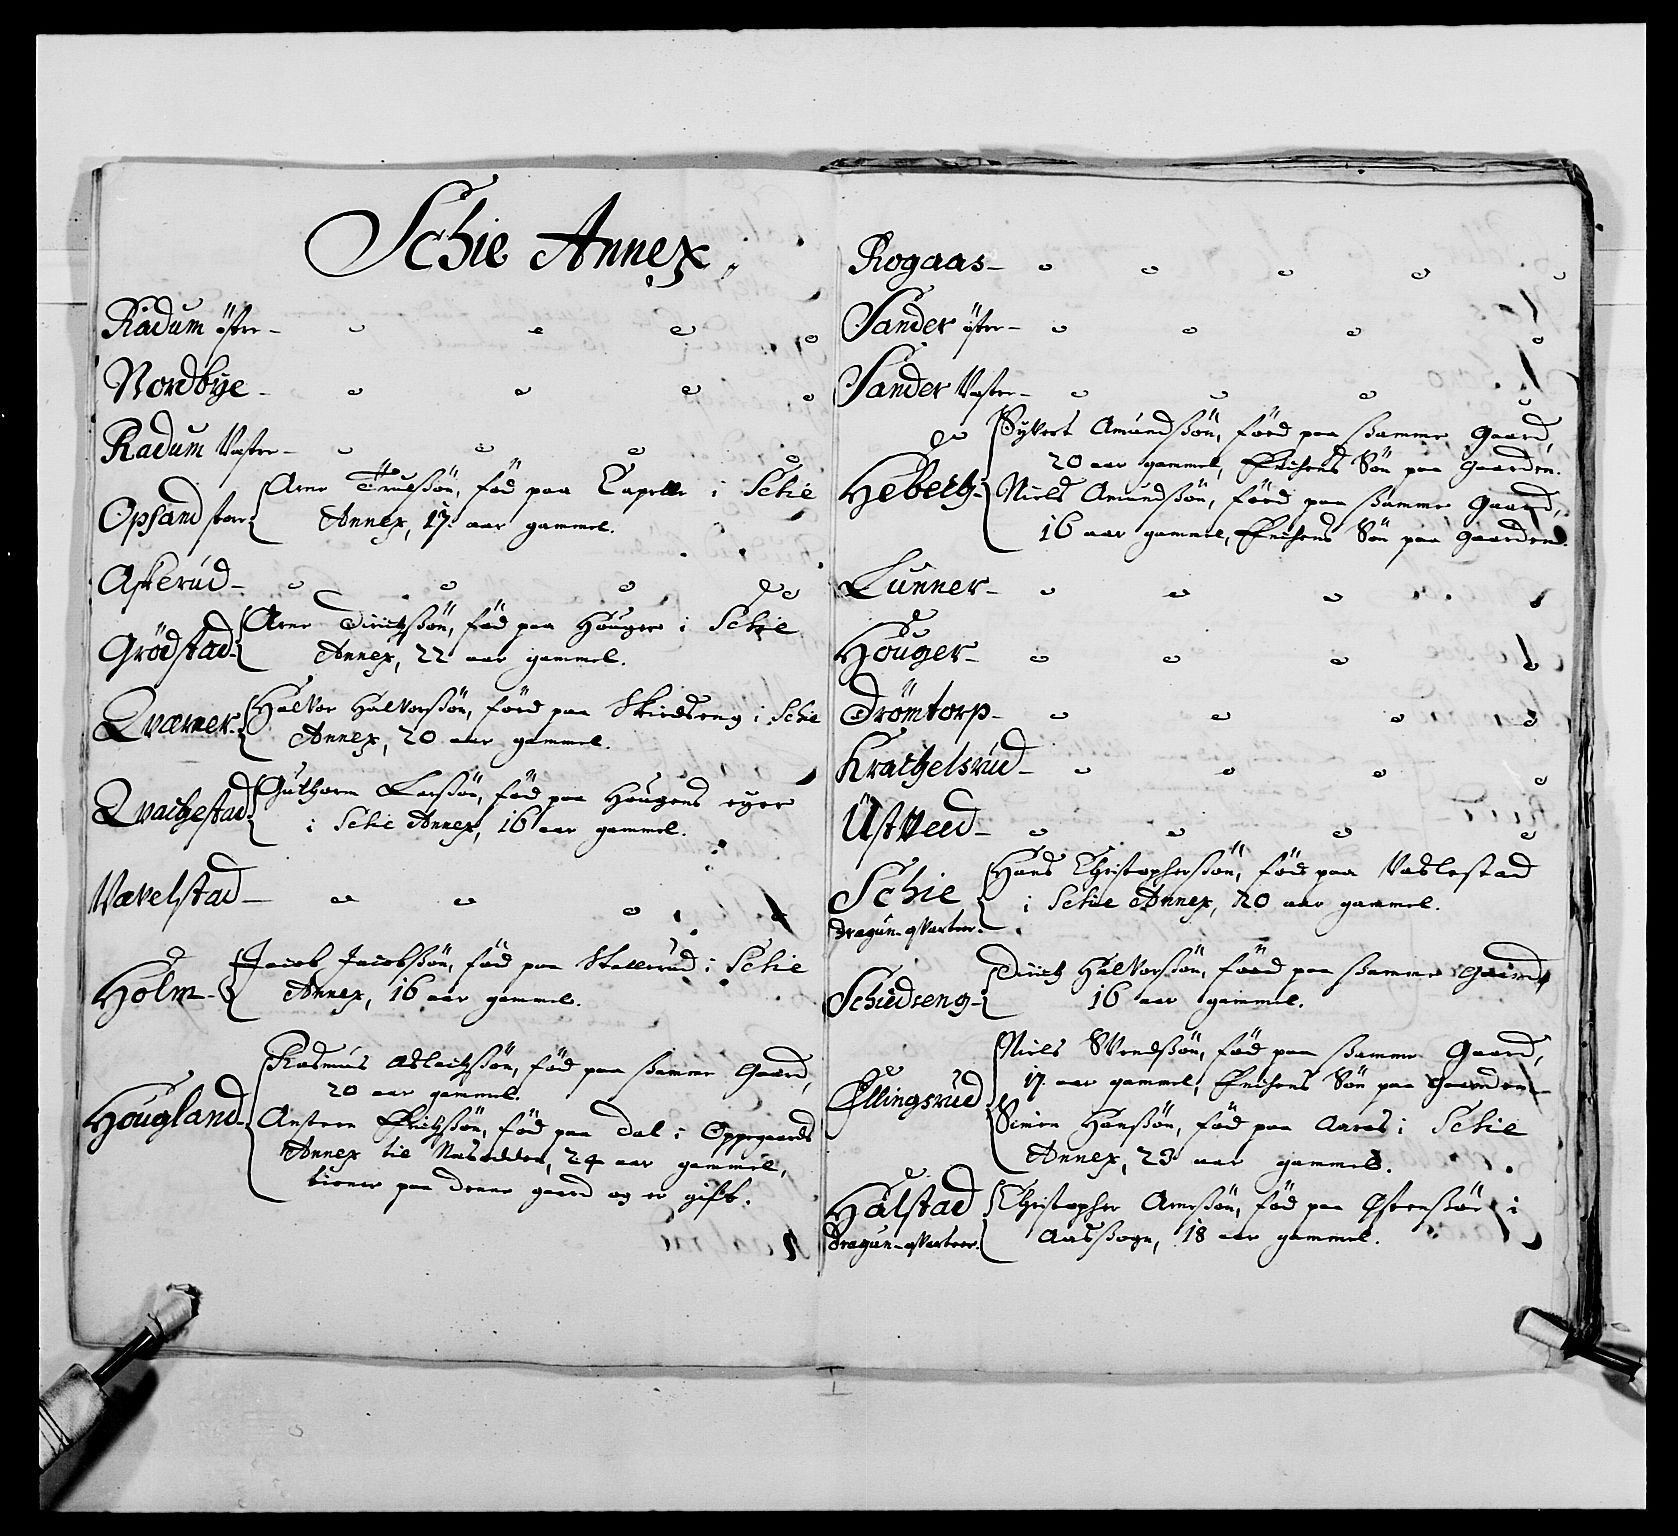 Schie Annex,
Riadum öster –
Nordbye –
Radum Vester –
Opsand store { Arne Trulssön, föd paa Capelle i Schie
Annex, 17 aar gammel.
Askerud –
Grödstad – { Arne Dirichssön, föd paa Houger i Schie
Annex, 22 aar gammel.
Qværner – { Halvor Halvorssön, föed paa Skiedseng i Schie
Annex, 20 aar gammel.
Qvachestad { Gutharm Larssön, föd paa Hougens eyer
i Schie Annex, 16 aar gammel.
Vævelstad –
Holm – { Jacob Jacobssön, föd paa Stallerud i Schie
Annex, 16 aar gammel.
Hougland – { Rasmus Aslachssön, föd paa samme Gaard,
20 aar gammel.
Anstern Erichssön, föd paa Dal i Oppegaards
Annex til Næsodden, 24 aar gammel,
tiener paa denne gaard og er gift.
Rogaas –
Sander öster –
Sander Vester –
Hebech – { Syvert Amundssön, föed paa samme Gaard,
20 aar gammel, Enchens Sön paa Gaarden.
Niels Amundssön, föed paa samme Gaard,
16 aar gammel, Enchens Sön paa Gaarden.
Lunner –
Houger –
Drömtorp –
Krachelsrud –
Üstveed –
Schie { Hans Christophersson, föd paa Vevlestad
Dragun-qvarteer. i Schie Annex, 20 aar gammel.
Schiedseng – { Dirich Halvorssön, föed paa samme Gaard,
16 aar gammel.
Ellingsrud { Niels Svendssön, föd paa samme Gaard,
17 aar gammel, Enchens Sön paa Gaarden.
Simen Hanssön, föd paa Aaraas i Schie
Annex, 23 aar gammel.
Halstad { Christopher Arnessön, föd paa Östenssiör i
Dragun-qvarteer. Aas Sogn, 18 aar gammel.